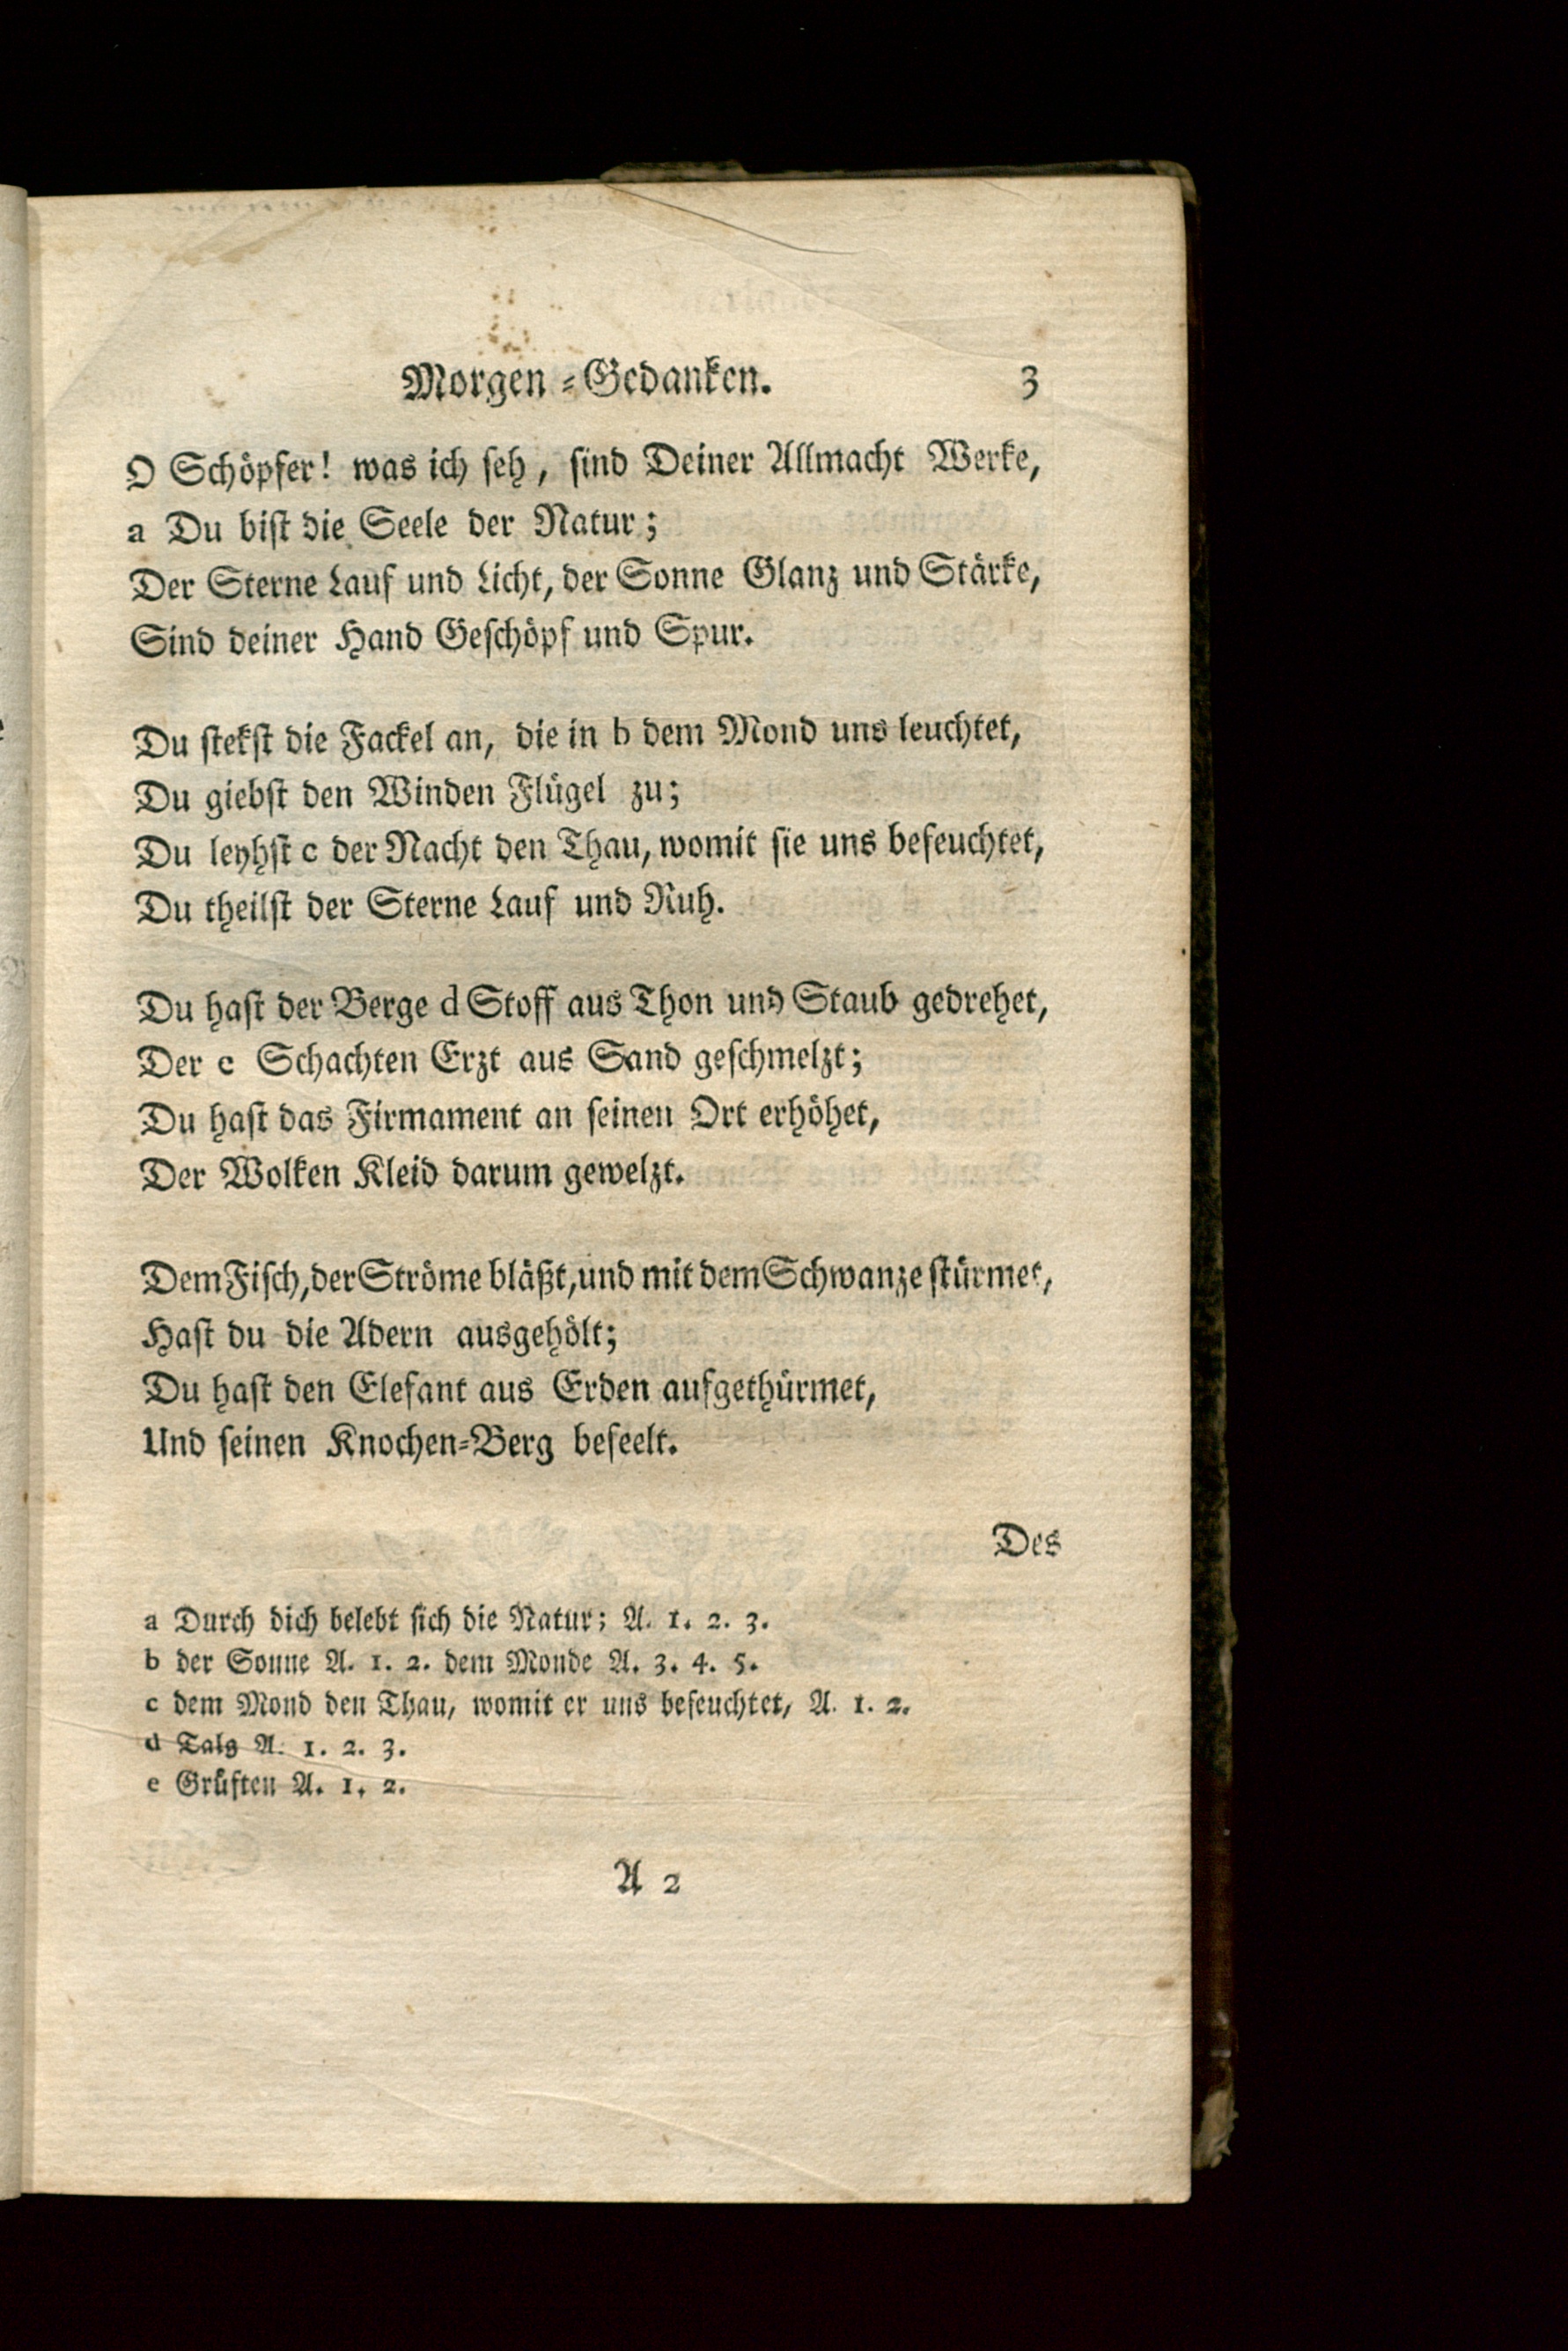 Morgen⸗Gedanken. 3
O Schöpfer! was ich seh, sind Deiner Allmacht Werke,
a Du bist die Seele der Natur;
Der Sterne Lauf und Licht, der Sonne Glanz und Stärke,
Sind deiner Hand Geschöpf und Spur.
Du stekst die Fackel an, die in b dem Mond uns leuchtet,
Du giebst den Winden Flügel zu;
Du leyhst c der Nacht den Thau, womit sie uns befeuchtet,
Du theilst der Sterne Lauf und Ruh.
Du hast der Berge d Stoff aus Thon und Staub gedrehet,
Der e Schachten Erzt aus Sand geschmelzt;
Du hast das Firmament an seinen Ort erhöhet,
Der Wolken Kleid darum gewelzt.
Dem Fisch, der Ströme bläßt, und mit dem Schwanze stürmet,
Hast du die Adern ausgehölt;
Du hast den Elefant aus Erden aufgethürmet,
Und seinen Knochen⸗Berg beseelt.
Des
a Durch dich belebt sich die Natur; A. 1. 2. 3.
b der Sonne A. 1. 2. dem Monde A. 3. 4. 5.
c dem Mond den Thau, womit er uns befeuchtet, A. 1. 2.
d Talg A. 1. 2. 3.
e Grüften A. 1. 2.
A 2